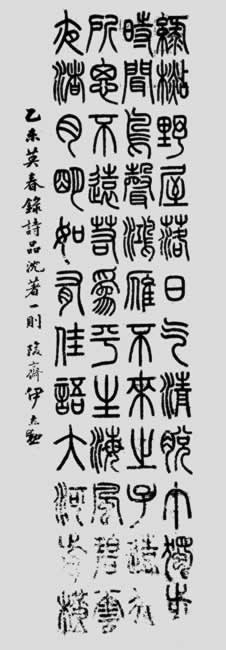 綠杉野屋落日气清脫巾獨步
時聞鳥聲鴻雁不來之子遠行
所思不遠若為平生海風碧雲
夜渚月明如有佳語大河前橫
乙未莫春錄詩品沈著一則 峻齋伊立勳